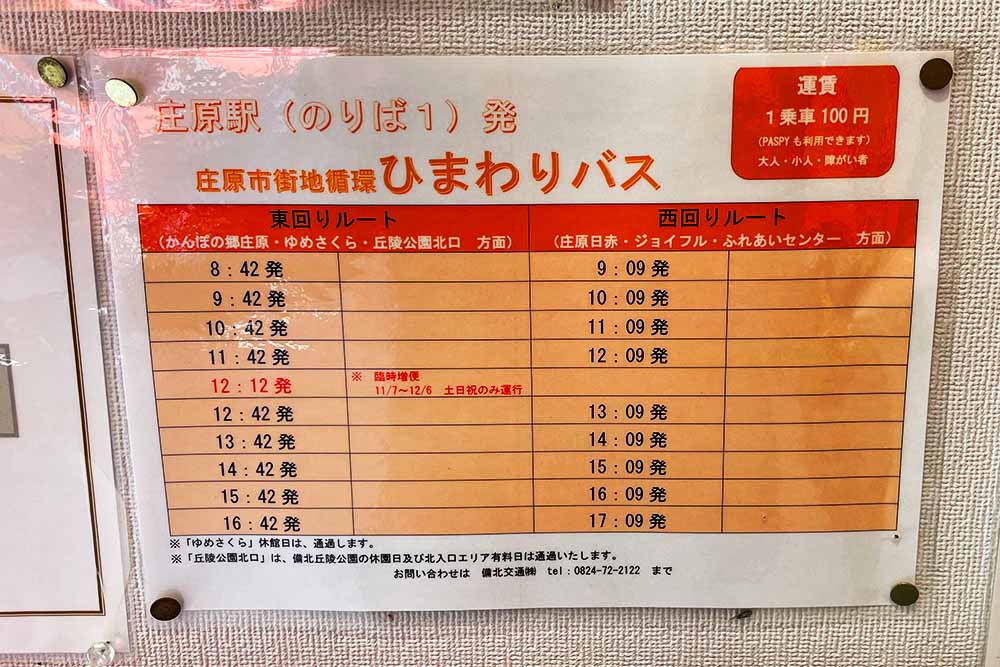 庄原駅（のりば１）発
運賃
１乗車 100 円
(PASPY も利用できます)
大人・小人・障がい者
庄原市街地循環ひまわりバス
東回りルート 西回りルート
（かんぽの郷庄原・ゆめさくら・丘陵公園北口　方面） （庄原日赤・ジョイフル・ふれあいセンター　方面）
8：42 発 9：09 発
9：42 発 10：09 発
10：42 発 11：09 発
11：42 発 12：09 発
12：12 発 ※　臨時増便
11/7～12/6　土日祝のみ運行
12：42 発 13：09 発
13：42 発 14：09 発
14：42 発 15：09 発
15：42 発 16：09 発
16：42 発 17：09 発
※「ゆめさくら」休館日は、通過します。
※「丘陵公園北口」は、備北丘陵公園の休園日及び北入口エリア有料日は通過いたします。
お問い合わせは　備北交通㈱　tel：0824-72-2122　まで